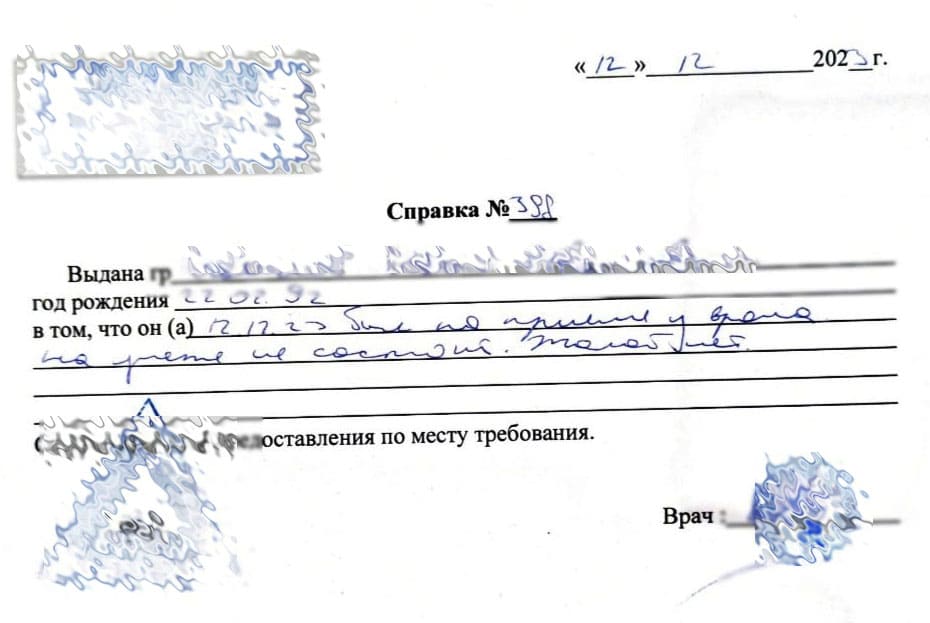 «12» 12 2023 г.
Справка № 398
Выдана гр
год рождения 22 02. 92
в том, что он (а) 12.12.23 был на приеме у врача
на учете не состоит. Жалоб нет.
доставления по месту требования.
Врач